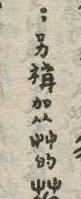 ：另補加从艸的